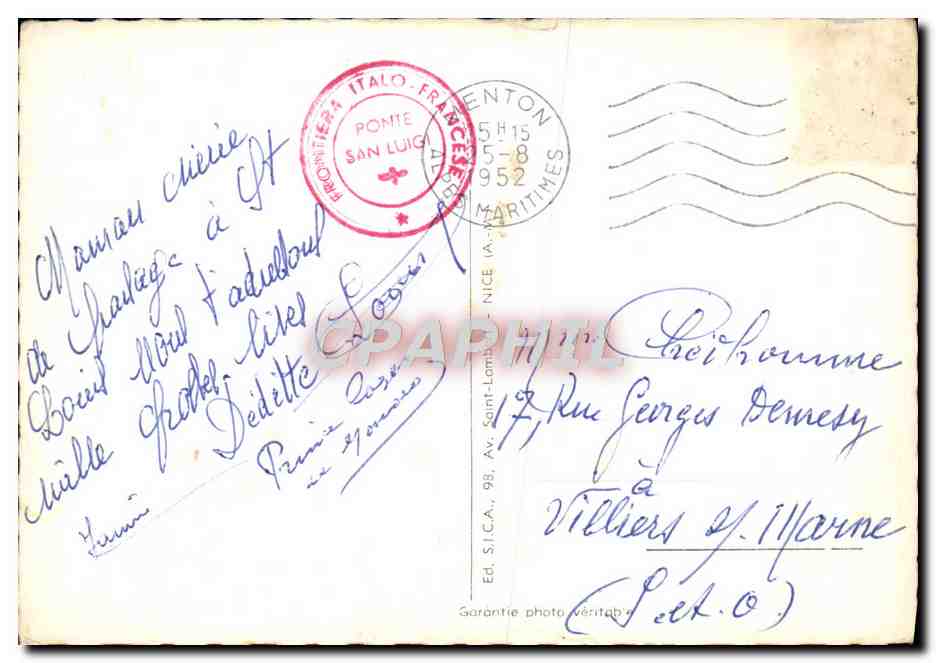 Maman chérie
de passage à St
Louis nous t'adressons
mille grosses bises
Dédette Louis
Prince
de Monaco
FRONTIERA ITALO-FRANCESE
PONTE
SAN LUIGI
MENTON
5H15
5-8
1952
MARITIMES
CPAPHIL
Ed. S.I.C.A., 98, Av. Saint-Lambert - NICE (A.-M.)
Mme Préthomme
17, Rue Georges
à
Villiers s/. Marne
(S. et. O.)
Garantie photo véritable